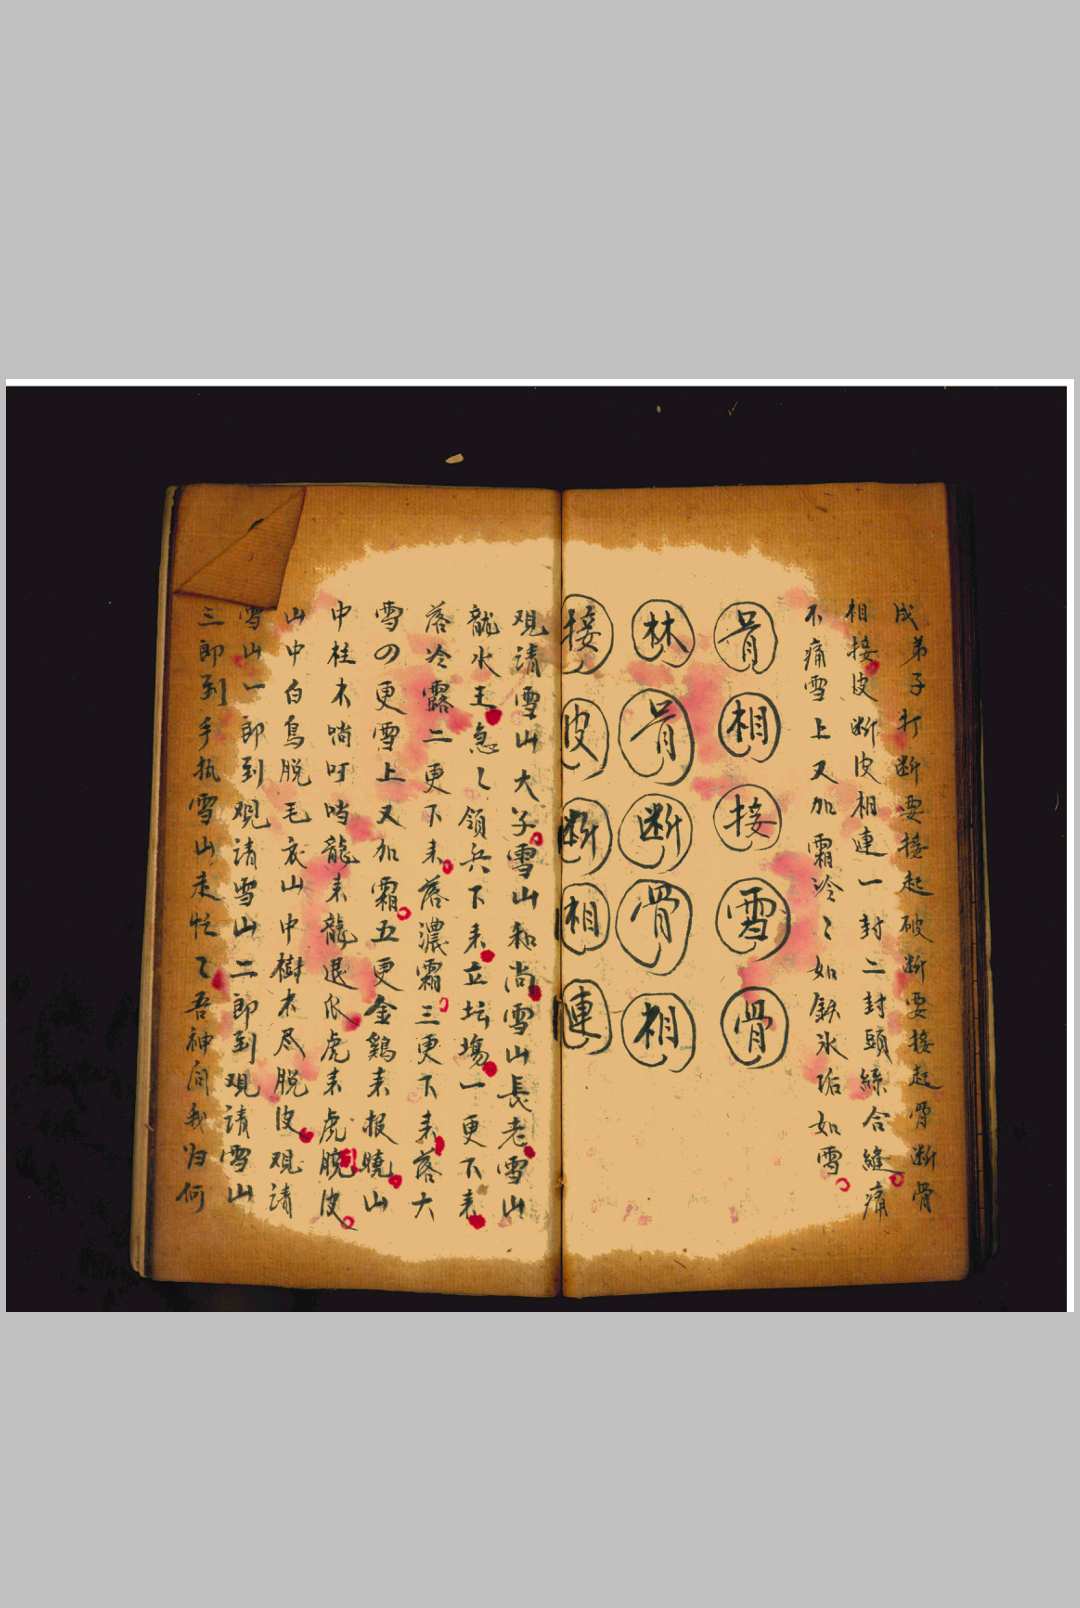 成弟子打断要接起破断要接起骨断骨
相接皮断皮相連一封二封頭絲合縫痛
不痛雪上又加霜冷〻如鉄氷垢如雪
骨相接雪骨
林骨断骨相
接皮断相連
观請雪山大子雪山和尚雪山長老雪山
龍水王急〻領兵下来立坛塲一更下来
落冷露二更下来落濃霜三更下来落大
雪の更雪上又加霜五更金鷄来报曉山
中柱木啃叮啃龍来龍退爪虎来虎脱皮
山中白鳥脱毛衣山中樹木尽脱皮观請
雪山一郎到观請雪山二郎到观請雪山
三郎到手执雪山走忙〻吾神问我为何